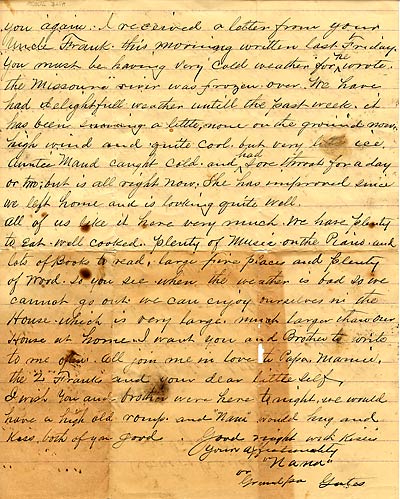 you again. I received a letter from your
Uncle Frank this morning written last Friday.
You must be having very cold weather for he wrote
the Missouri river was frozen over. We have
had delightfull weather untill the past week. it
has been snowing a little, none on the ground now.
high wind and quite cool. but very little ice.
Auntee Maud caught Cold. and had Sore throat for a day
or two, but is all right now, She has improved since
we left home and is looking quite well.
all of us like it here very much. We have plenty
to Eat. well cooked. Plenty of Music on the Piano. and
lots of Books to read, large fire place and Plenty
of Wood. So you see when the weather is bad so we
cannot go out we can enjoy ourselves in the
House. which is very large. much larger than our
House at home. I want you and Brother to write
to me often. All join me in love to Papa, Mamie,
the 2 Franks and your dear little Self,
I wish you and brother were here to night. we would
have a high old romp. and "Nana" would hug and
Kiss both of you good. Good night with Kisses
Your affectionately
"Nana"
or Grandpa Gates